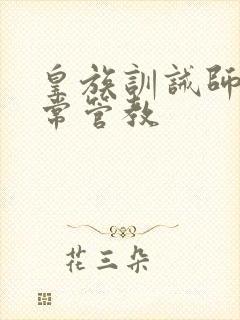 皇族訓誡師
常管教
花三朵